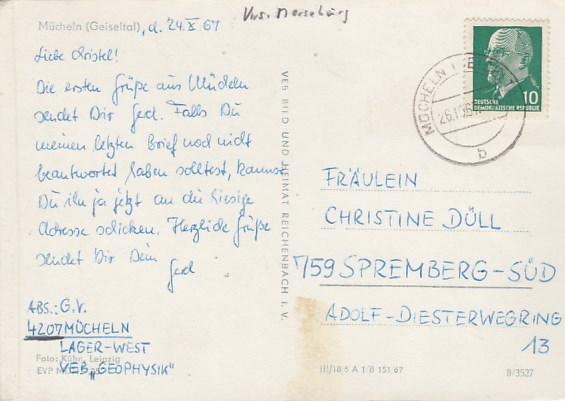 Krs. Merseburg
Mücheln (Geiseltal), d. 24.X.67
Liebe Christel!
Die ersten Grüße aus Mücheln
sendet Dir Gerd. Falls Du
meinen letzten Brief noch nicht
beantwortet haben solltest, kannst
Du ihn ja jetzt an die hiesige
Adresse schicken. Herzliche Grüße
sendet Dir Dein
Gerd
ABS.: G.V.
4207 MÜCHELN
LAGER-WEST
VEB „GEOPHYSIK"
Foto: Kühn, Leipzig
EVP
VEB BILD UND HEIMAT REICHENBACH I. V.
MÜCHELN
b
10
DEUTSCHE
DEMOKRATISCHE REPUBLIK
FRÄULEIN
CHRISTINE DÜLL
759 SPREMBERG-SÜD
ADOLF-DIESTERWEGRING
13
III/18 6 A 1/B 151 67
B/3527